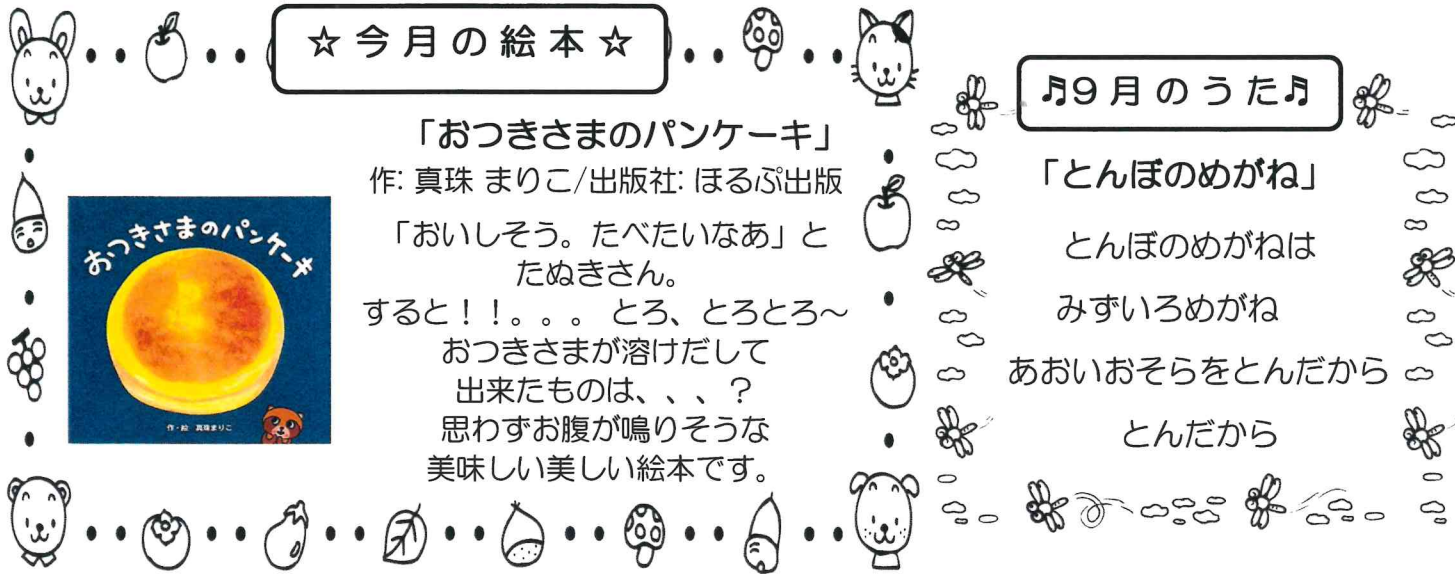 ☆今月の絵本☆
「おつきさまのパンケーキ」
作: 真珠 まりこ/出版社: ほるぷ出版
おつきさまのパンケーキ
作・絵 真珠まりこ
「おいしそう。たべたいなあ」と
たぬきさん。
すると！！。。。 とろ、とろとろ～
おつきさまが溶けだして
出来たものは、、、？
思わずお腹が鳴りそうな
美味しい美しい絵本です。
♬9月のうた♬
「とんぼのめがね」
とんぼのめがねは
みずいろめがね
あおいおそらをとんだから
とんだから